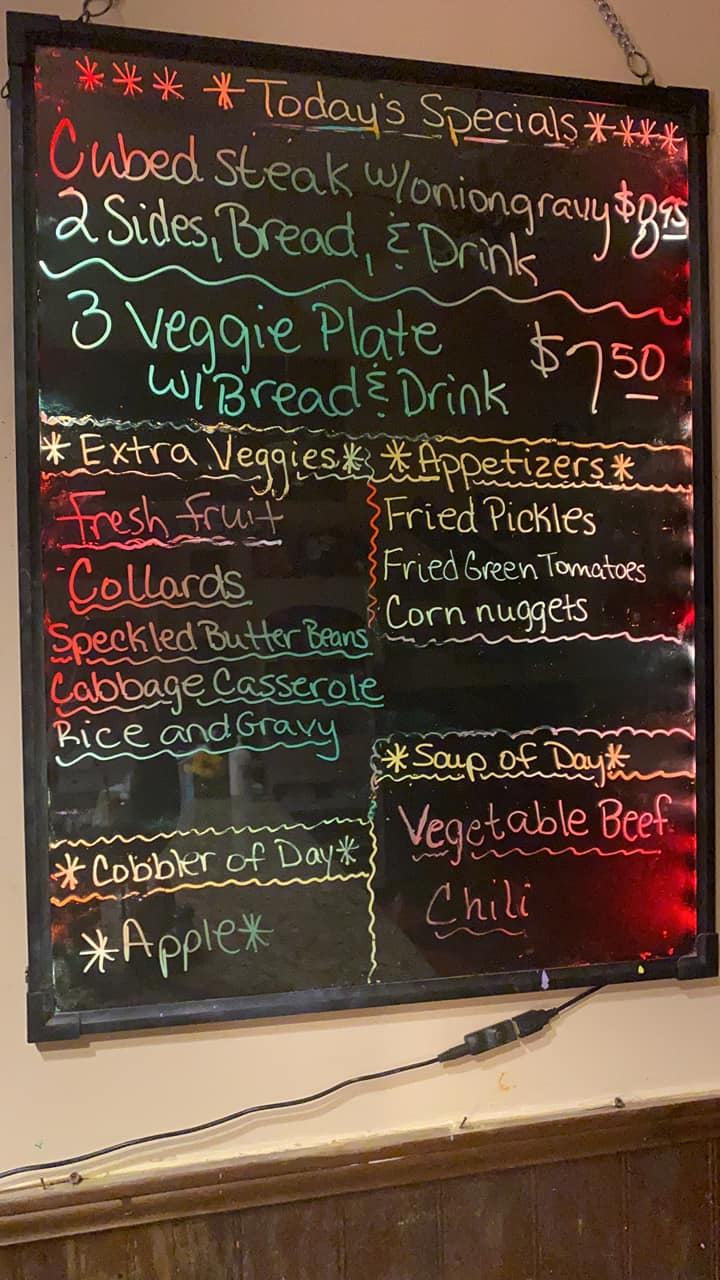 *** *Today's Specials****
Cubed steak w/oniongravy $8.95
2 Sides, Bread, & Drink
3 Veggie Plate $7.50
w/Bread & Drink
*Extra Veggies*
Fresh fruit
Collards
Speckled Butter Beans
Cabbage Casserole
Rice and Gravy
*Cobbler of Day*
*Apple*
*Appetizers*
Fried Pickles
Fried Green Tomatoes
Corn nuggets
*Soup of Day*
Vegetable Beef
Chili